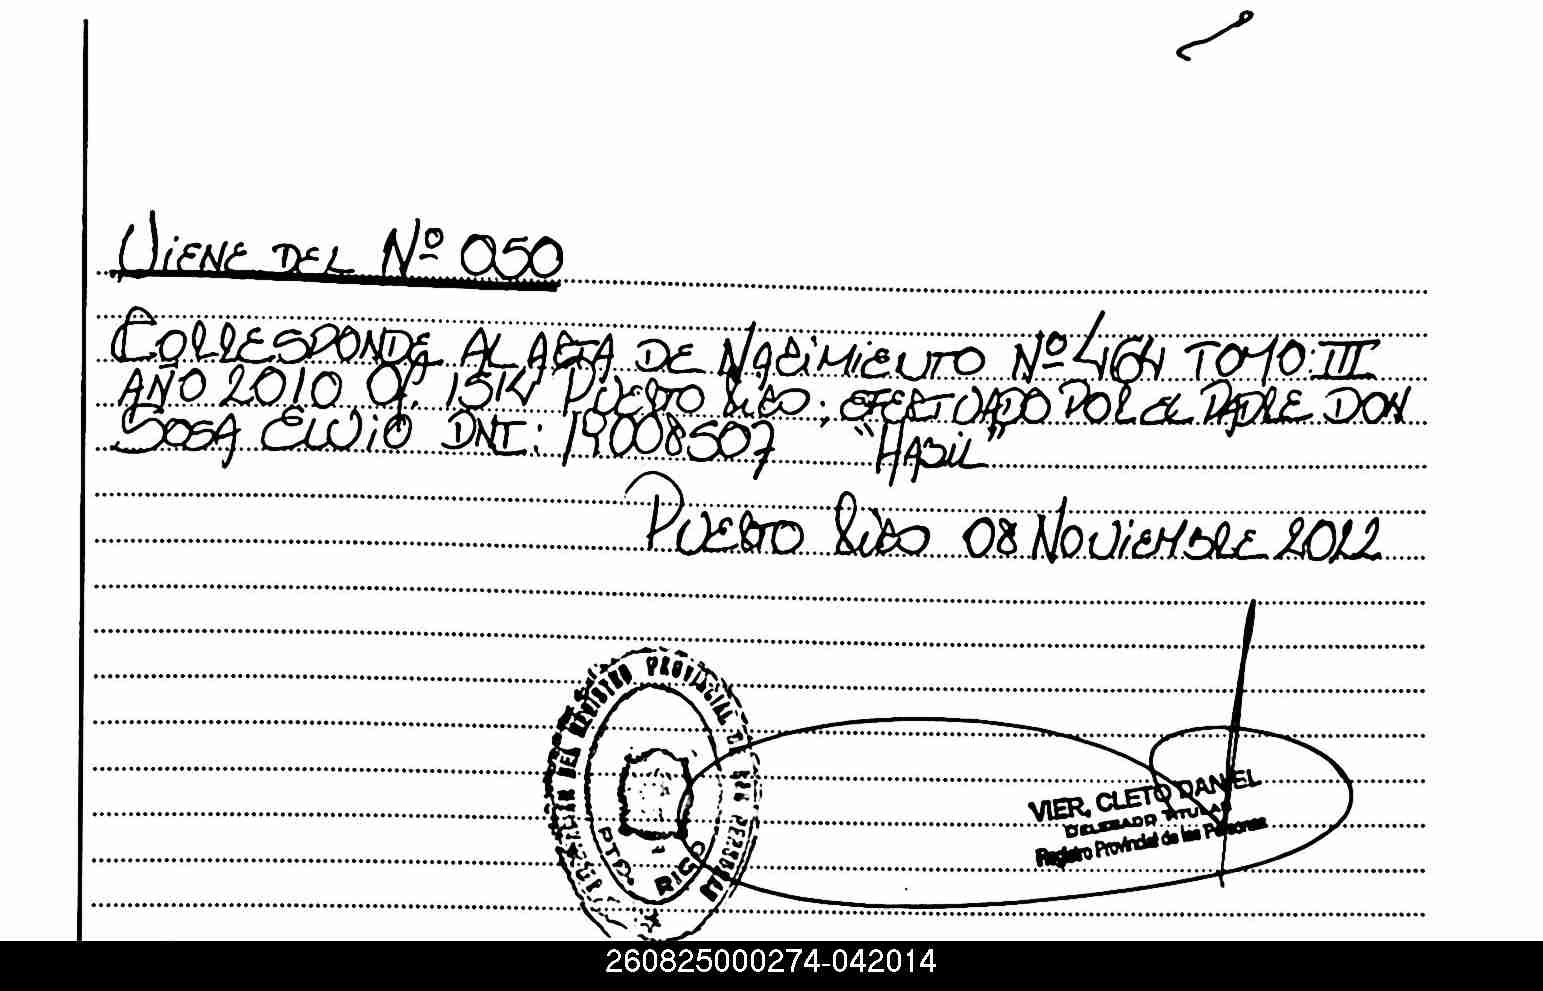 Viene del Nº 050
Corresponde al acta de Nacimiento Nº 464 Tomo: III
año 2010 Of. 1514 Puerto Rico. efectuado por el padre Don
Sosa Elvio DNI: 19008507 "Habil"
Puerto Rico 08 Noviembre 2022
DEL REGISTRO PROVINCIAL DE LAS PERSONAS
PTO. RICO
VIER, CLETO DANIEL
DELEGADO TITULAR
Registro Provincial de las Personas
260825000274-042014